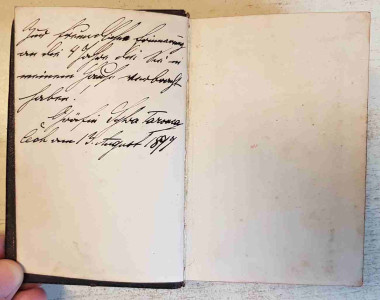 Zur freundlichen Erinnerung
an die 4 Jahre, die Sie in
meinem Hause verbracht
haben.
Gräfin
am 13. August 1897